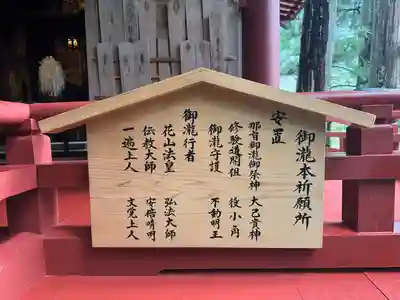 御瀧本祈願所
安置
那智御瀧御祭神 大己貴神
修験導開祖 役小角
御瀧守護 不動明王
御瀧行者
花山法皇 弘法大師
伝教大師 安倍晴明
一遍上人 文覚上人